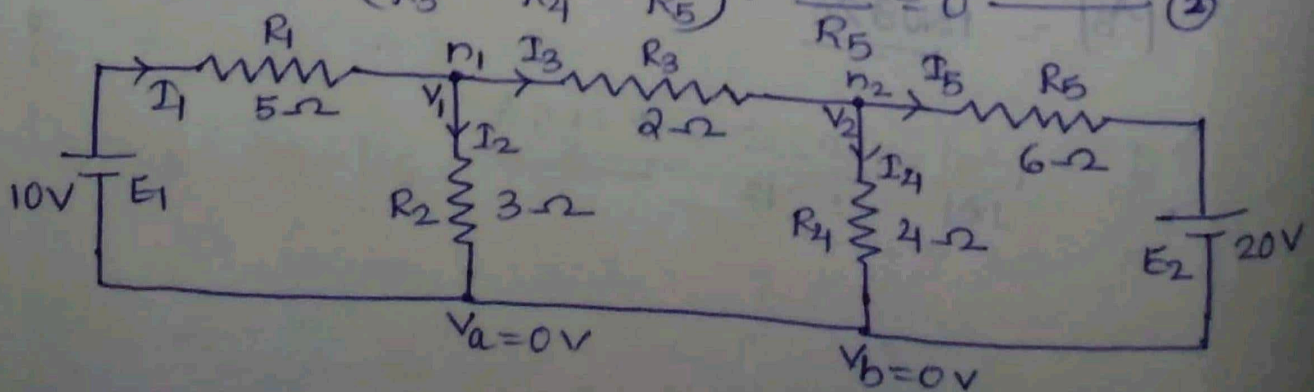 R4 R5) = 0 2
R5
R1 n1 I3 R3 n2 I5 R5
I1 5Ω V1 2Ω V2 6Ω
I2 I4
10V E1 R2 3Ω R4 4Ω E2 20V
Va=0V Vb=0V